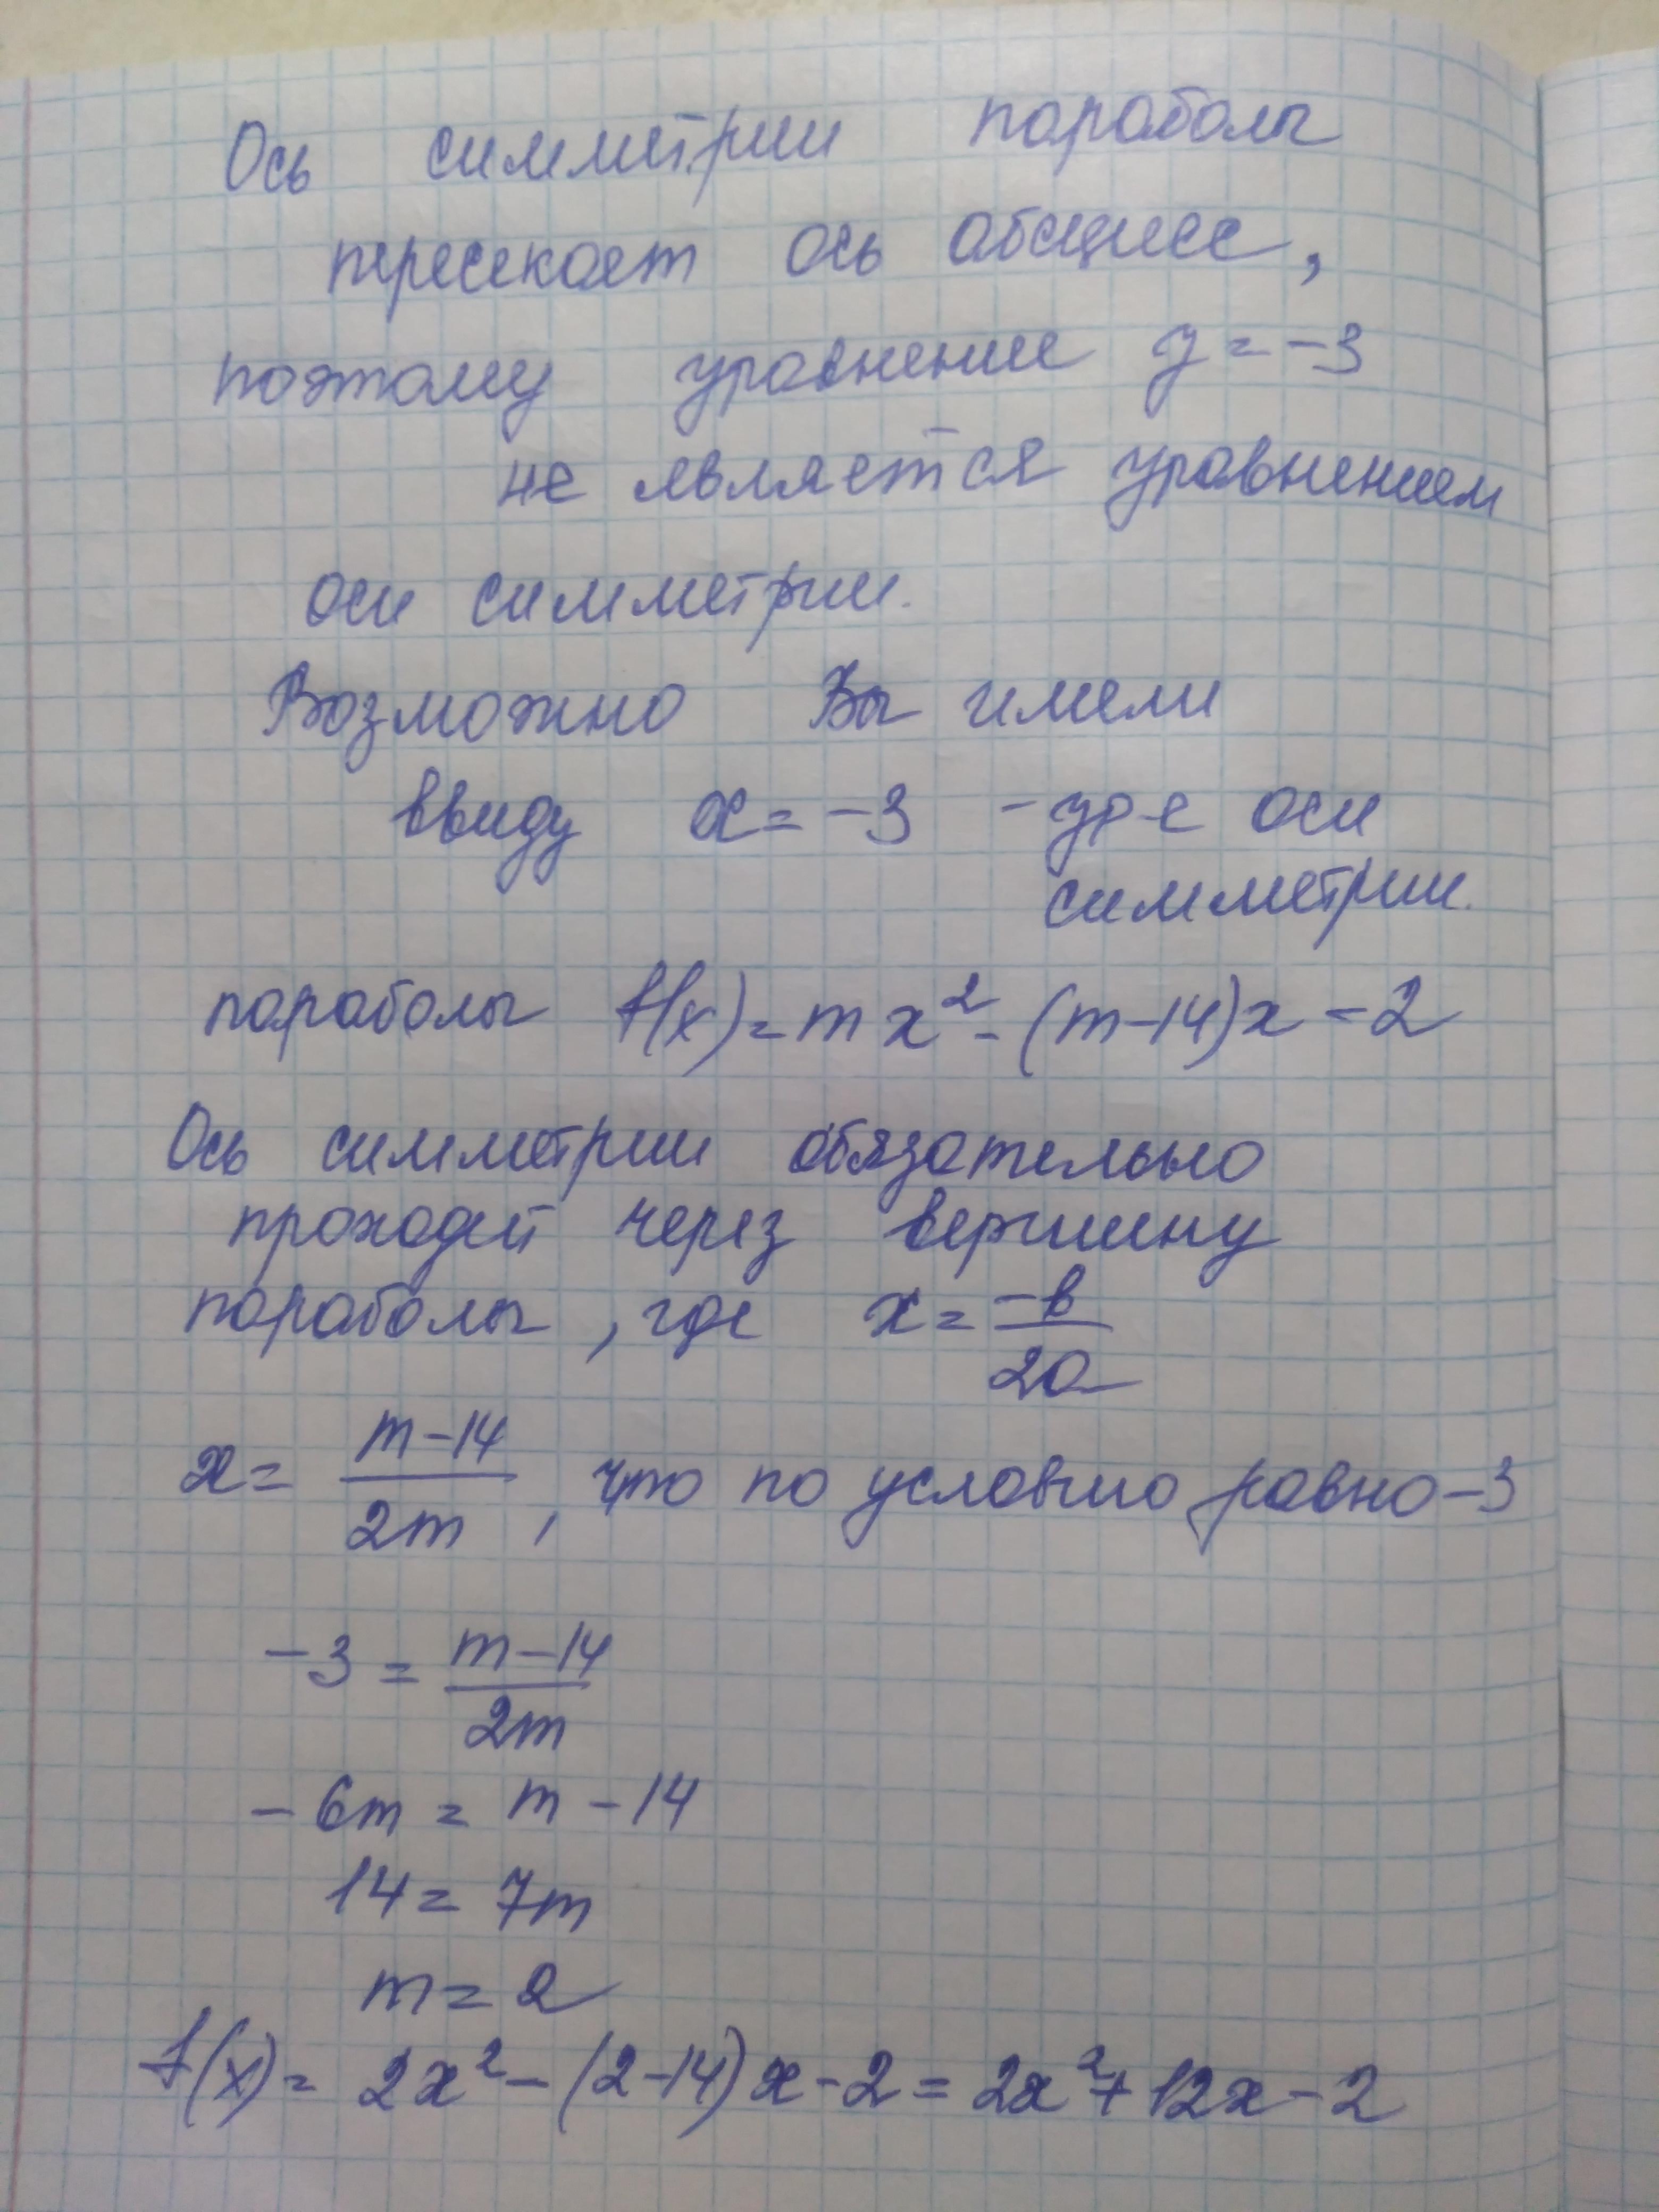 Ось симметрии параболы
пересекает ось абсцисс,
поэтому уравнение y = -3
не является уравнением
оси симметрии.
Возможно Вы имели
ввиду x = -3 - ур-е оси
симметрии.
параболы f(x) = mx² - (m-14)x - 2
Ось симметрии обязательно
проходит через вершину
параболы, где x = -b/2a
x = (m-14)/2m, что по условию равно -3
-3 = (m-14)/2m
-6m = m - 14
14 = 7m
m = 2
f(x) = 2x² - (2-14)x - 2 = 2x² + 12x - 2